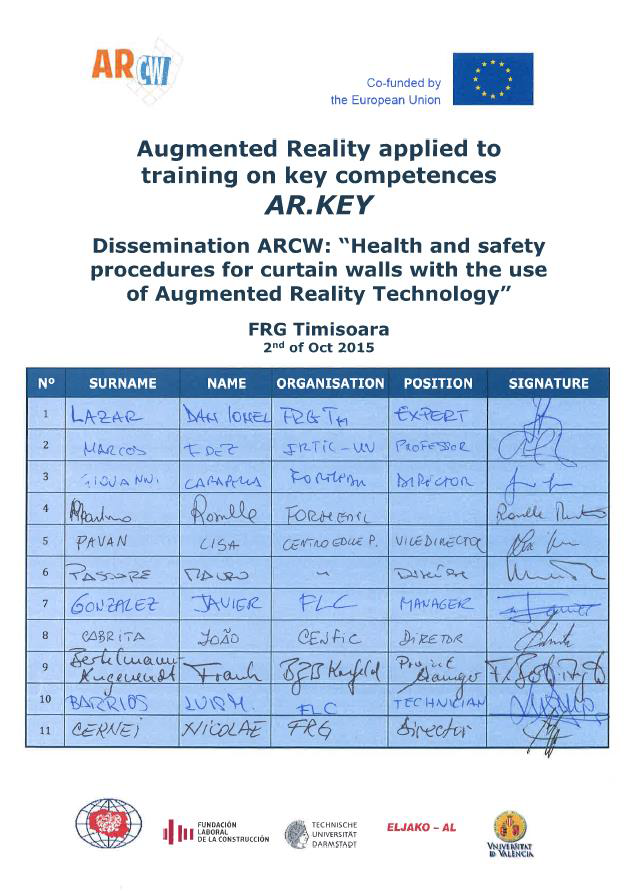 ARCW
Co-funded by
the European Union
Augmented Reality applied to
training on key competences
AR.KEY
Dissemination ARCW: “Health and safety
procedures for curtain walls with the use
of Augmented Reality Technology”
FRG Timisoara
2nd of Oct 2015
Nº SURNAME NAME ORGANISATION POSITION SIGNATURE
1 LAZAR DAN IONEL FRGTM EXPERT
2 MARCOS FDEZ IRTIC-UV PROFESSOR
3 GIOVANNI CARAPELLA FORMEDIL DIRECTOR
4 Martino Romolle FORMEDIL
5 PAVAN LISA CENTRO EDILE P. VICEDIRECTOR
6 MAURO
7 GONZALEZ JAVIER FLC MANAGER
8 CABRITA JOÃO CENFIC DIRETOR
9 Bertelmann- Frank BZB Krefeld Project
Manager
10 BARRIOS LUIS M. FLC TECHNICIAN
11 CERNEI NICOLAE FRG Director
FUNDACIÓN
LABORAL
DE LA CONSTRUCCIÓN
TECHNISCHE
UNIVERSITÄT
DARMSTADT
ELJAKO – AL
VNIVERSITAT
D VALÈNCIA